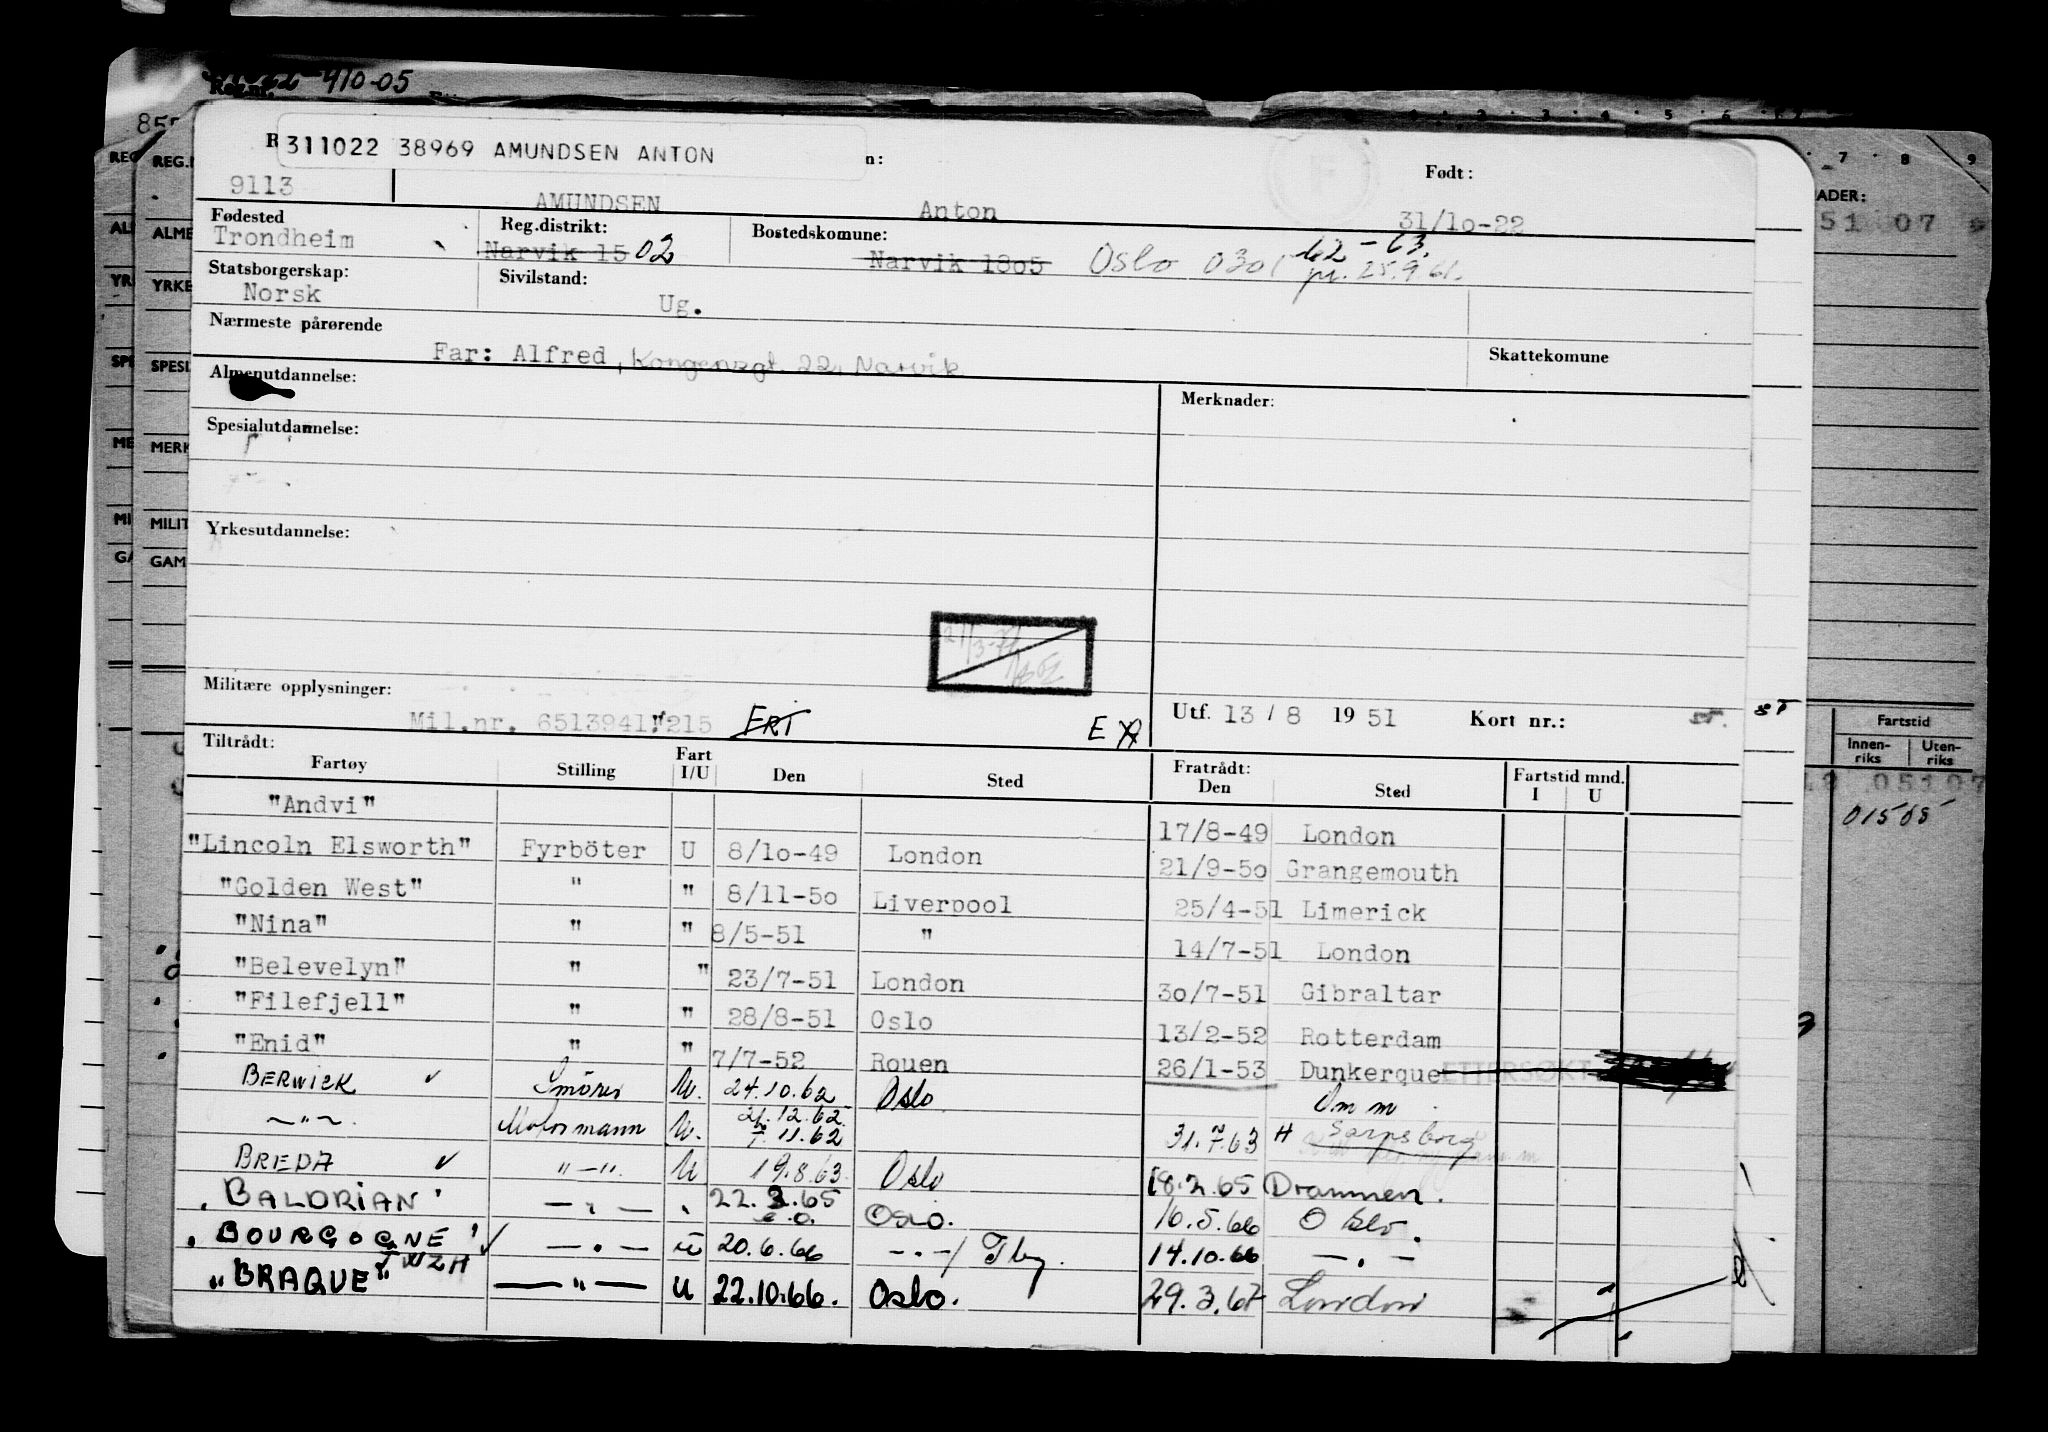 410-05
855
311022 38969 AMUNDSEN ANTON
n:
Født:
9113 AMUNDSEN Anton 31/1o-22
Fødested
Trondheim
Reg.distrikt:
Narvik 15 02
Bostedskomune:
Narvik 18o5 Oslo 0301 62-63.
25.9.61.
Statsborgerskap:
Norsk
Sivilstand:
Ug.
Nærmeste pårørende
Far: Alfred, Kongensgt 22, Narvik
Skattekomune
Almenutdannelse:
Merknader:
Spesialutdannelse:
Yrkesutdannelse:
Militære opplysninger:
Mil.nr. 6513941"215 ERT E
Utf. 13 / 8 19 51 Kort nr.:
Tiltrådt:
Fartøy Stilling Fart I/U Den Sted
Fratrådt:
Den Sted
Fartstid mnd.
I U
"Andvi" 17/8-49 London
"Lincoln Elsworth" Fyrböter U 8/1o-49 London 21/9-5o Grangemouth
"Golden West" " " 8/11-5o Liverpool 25/4-51 Limerick
"Nina" " " 8/5-51 " 14/7-51 London
"Belevelyn" " " 23/7-51 London 3o/7-51 Gibraltar
"Filefjell" " " 28/8-51 Oslo 13/2-52 Rotterdam
"Enid" " " 7/7-52 Rouen 26/1-53 Dunkerque ETTERSØKT
BERWICK ✓ Smörer U. 24.10.62 Oslo Omm
—"— Motormann U. 12.62
11.62 31.7.63 H Sarpsborg
BREDA ✓ "—" U 19.8.63 Oslo 18.2.65 Drammen.
BALDRIAN' — " — 22.3.65 Oslo. 10.5.66 Oslo.
"BOURGOGNE" ✓ — " — 20.6.66 — " —/ Tbg. 14.10.66 — " —
"BRAQUE" — " — U 22.10.66. Oslo. 29.3.67 London
REG.
ALME
YRKE
SPESI
MERK
MILIT
GAM
7 8 9
ADER:
51 07
Fartstid
Innen-
riks
Uten-
riks
05107